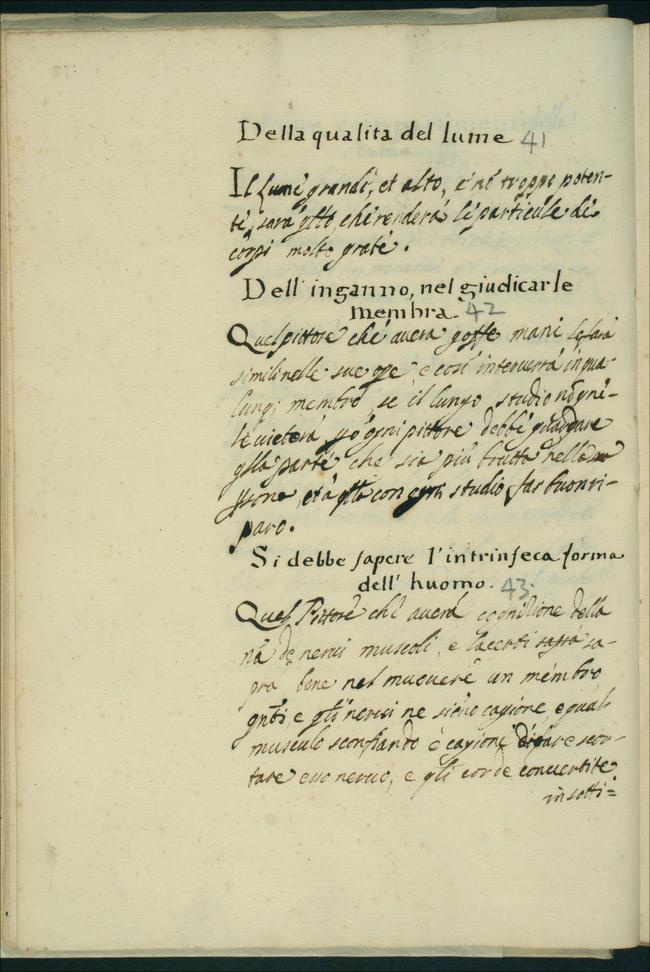 Della qualita del lume 41
Il lume grandi, et alto, e nõ troppo poten-
te, sara qllo, che renderà le particule de
corpi molto grate.
Dell' inganno, nel giudicar le
membra. 42
Quel pittore che averà goffe mani le farà
simili nelle sue ope e così interverrà in qua-
lungi membro, se il lungo studio nõ gni-
le vieterà, po ogni pittore debbe guardare
qlla parte che sia più brutta nella
psona, et à qlla con studio far buon ri-
paro.
Si debbe sapere l'intrinseca forma
dell' huomo. 43.
Quel Pittore chi averà cognitione della
nã de nervi muscoli, e lacerti saprà
bene nel muovere un membro
qnti e qli nervi ne sieno cagione, e qual
musculo sconfiando è cagione di fare scor-
tare esso nervo, e qli corde convertite
in sotti=